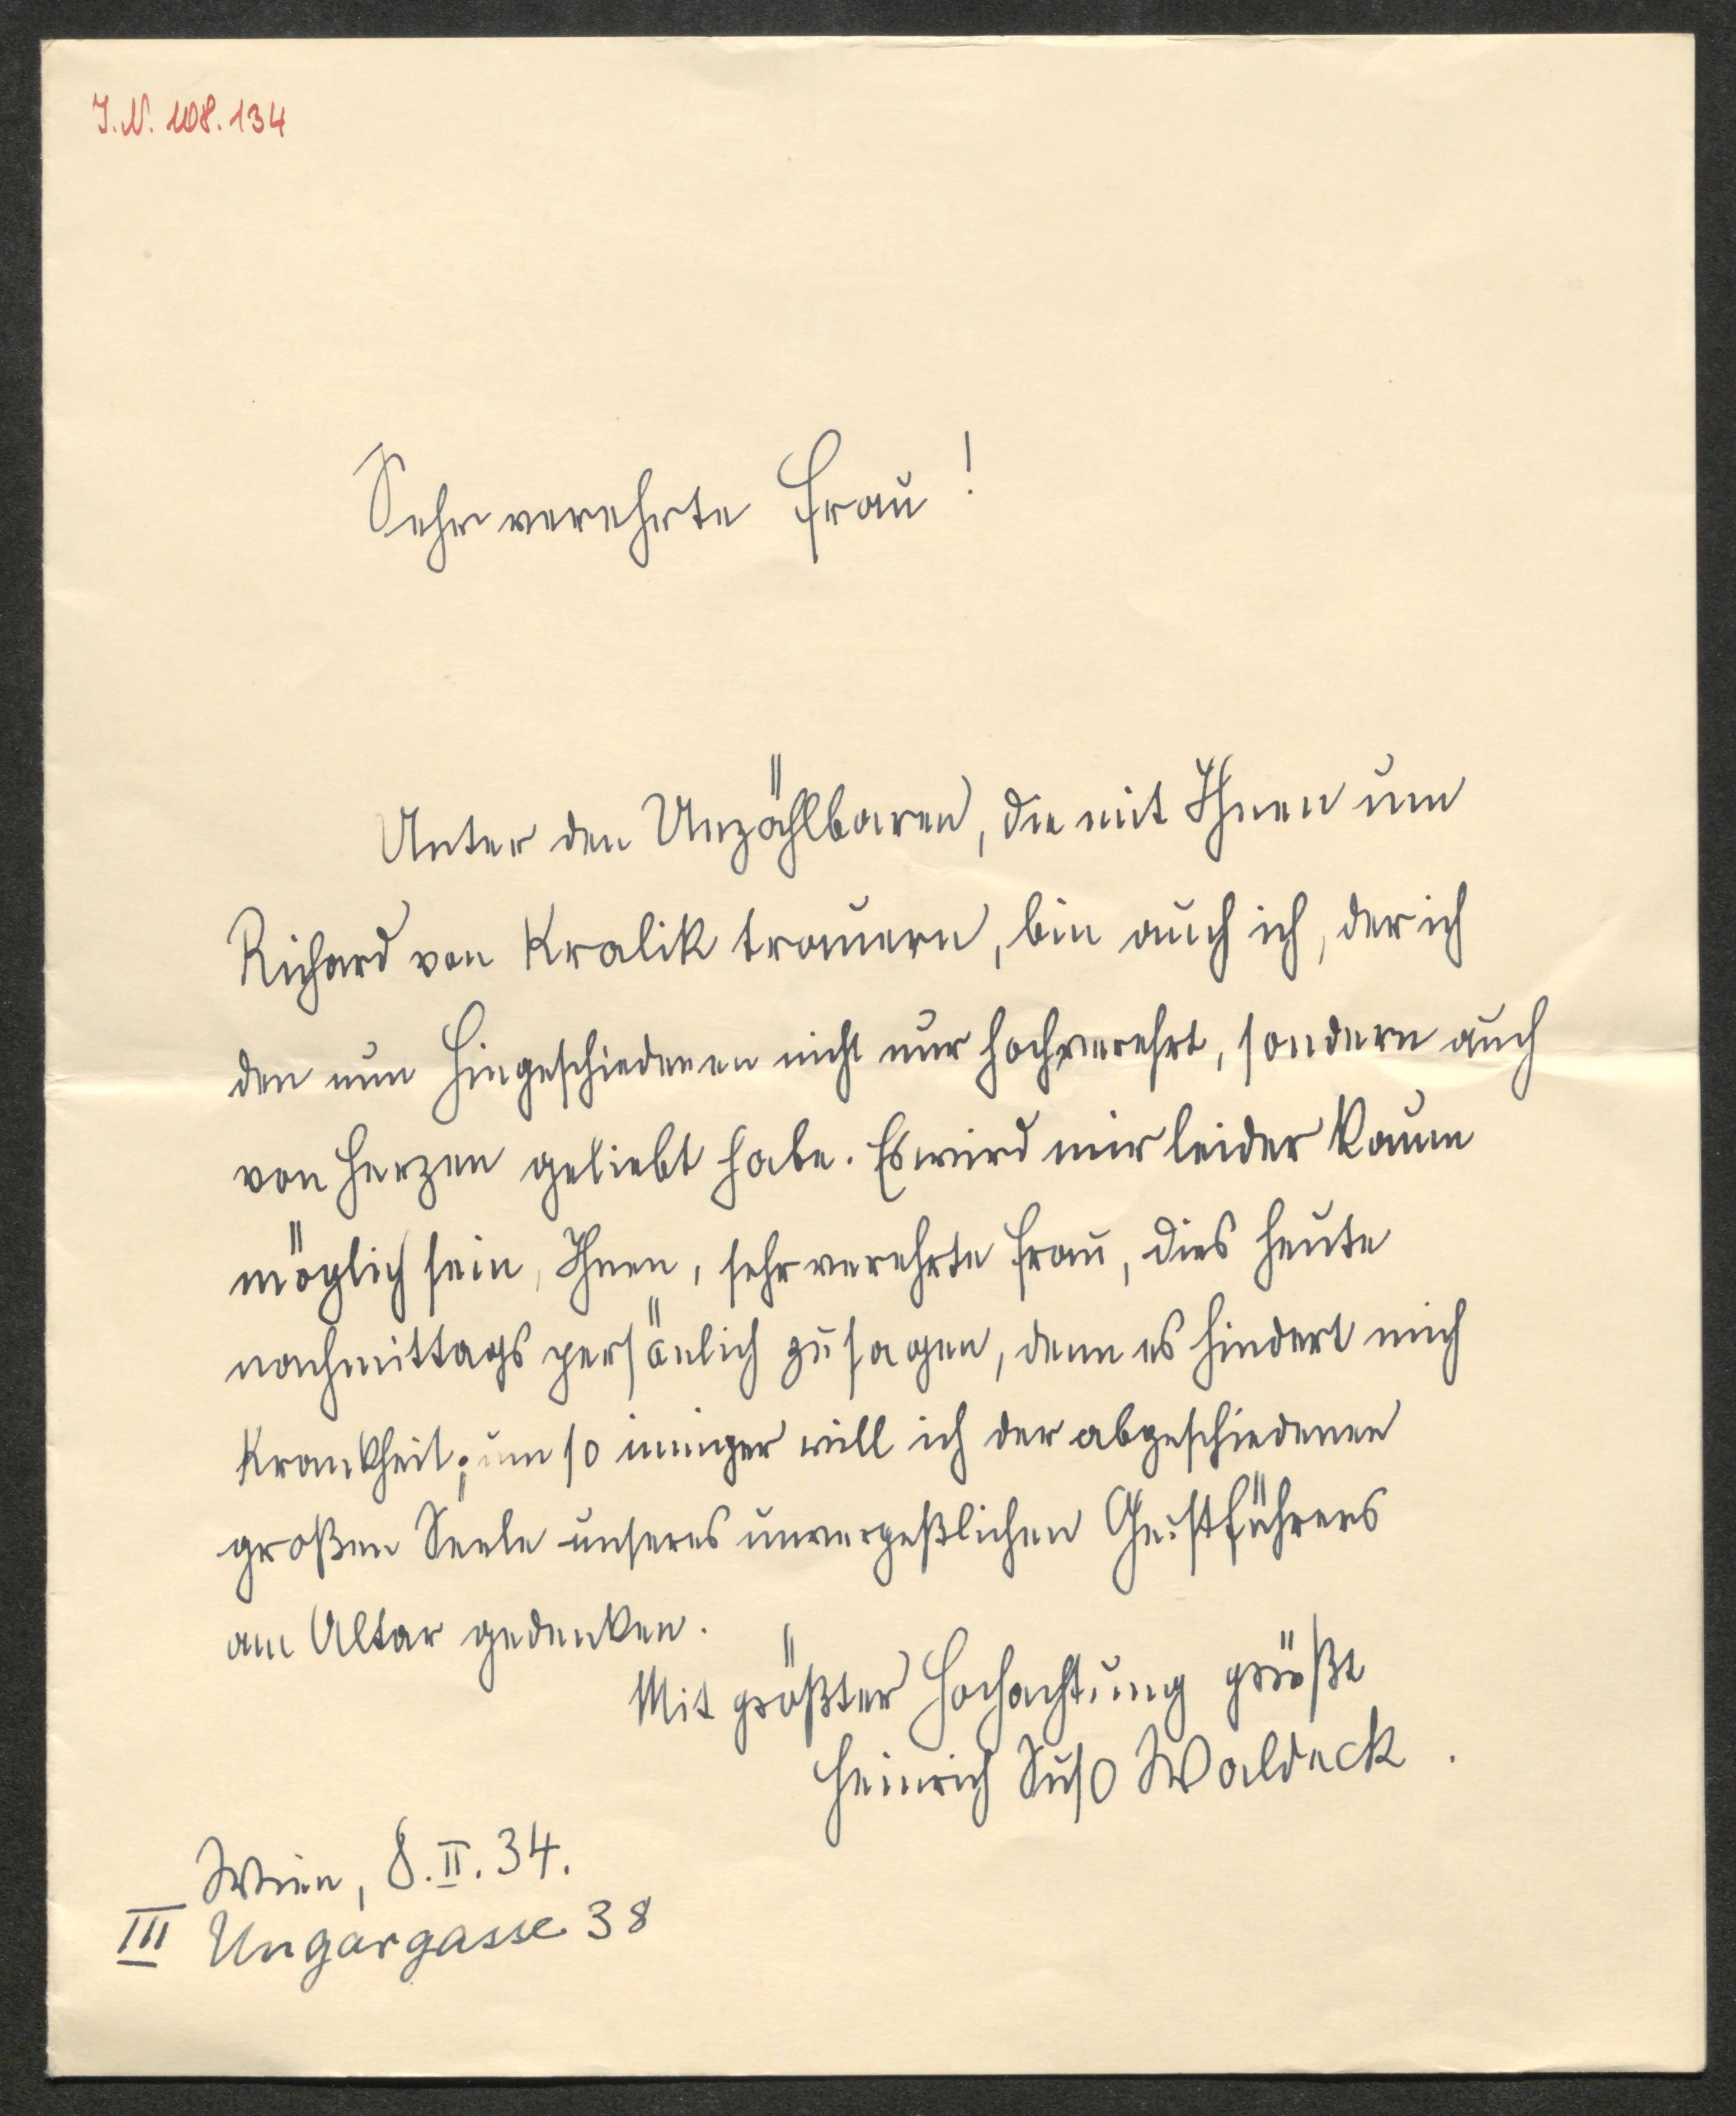 I.N. 108.134
Sehr verehrte Frau!
Unter den Unzählbaren, die mit Ihnen um
Richard von Kralik trauern, bin auch ich, der ich
den nun Hingeschiedenen nicht nur hochverehrt, sondern auch
von Herzen geliebt habe. Es wird mir leider kaum
möglich sein, Ihnen, sehr verehrte Frau, dies heute
nachmittags persönlich zu sagen, denn es hindert mich
Krankheit; um so inniger will ich der abgeschiedenen
großen Seele unseres unvergeßlichen Geistführers
am Altar gedenken.
Mit größter Hochachtung grüßt
Heinrich Suso Waldeck.
Wien, 8.II.34.
III Ungargasse 38